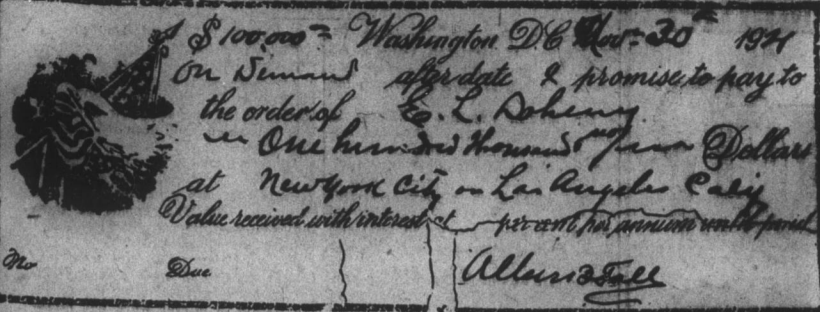 $100,000 00 Washington D.C. Nov. 30th 1921
On Demand after date I promise to pay to
the order of E. L. Doheny
One hundred thousand Dollars
at New York City or Los Angeles Calif
Value received with interest at per cent per annum until paid
No Due Albert B Fall